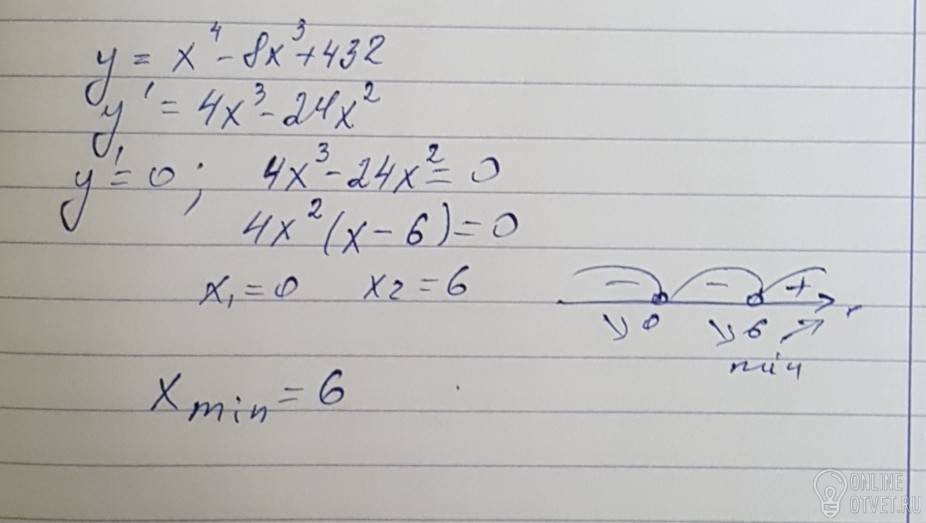 y = x⁴ - 8x³ + 432
y' = 4x³ - 24x²
y' = 0; 4x³ - 24x² = 0
4x²(x - 6) = 0
x₁ = 0 x₂ = 6
- - +
0 6
min
x min = 6
ONLINE
OTVET.RU